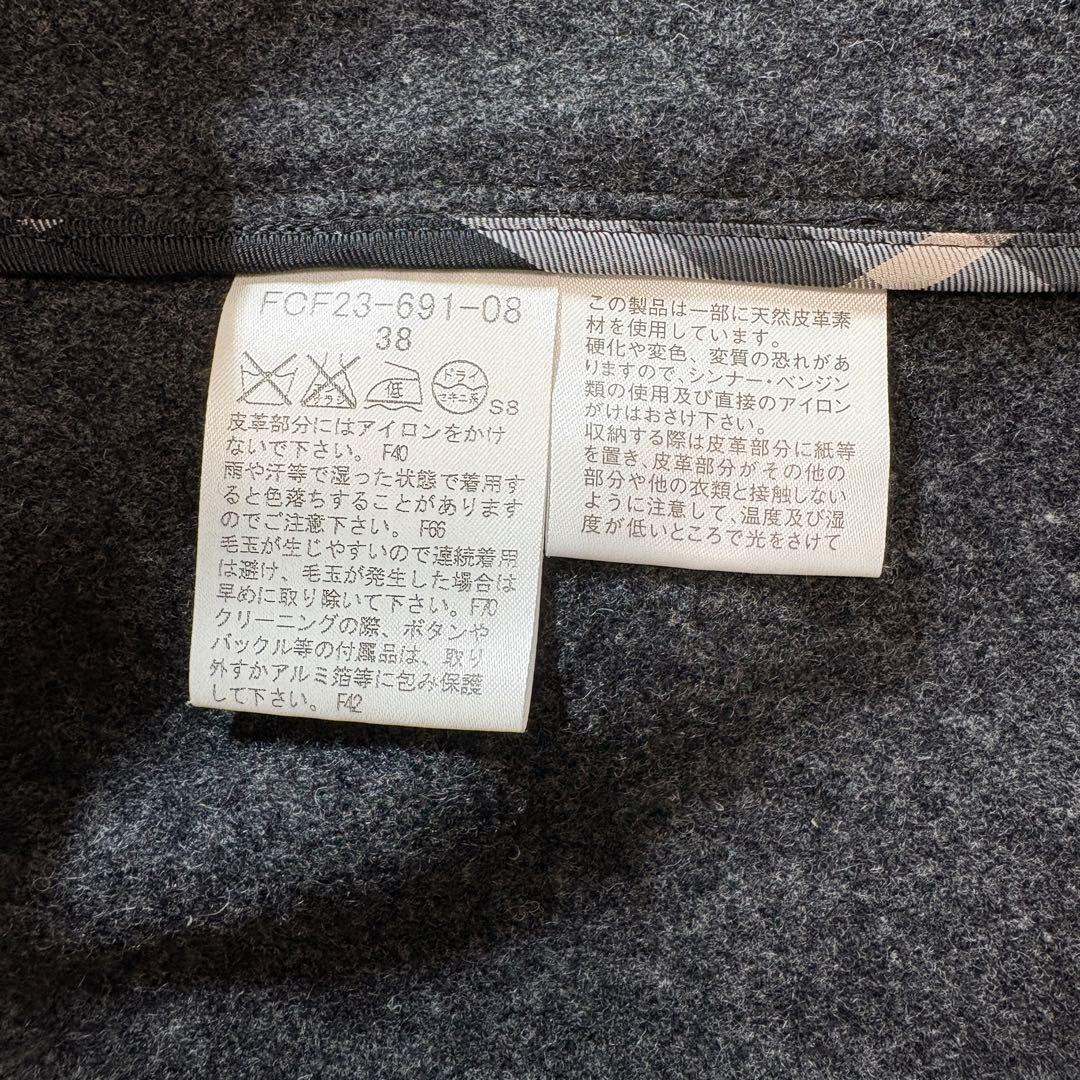 FCF23-691-08
38
エンソ
サラシ
低
ドライ
セキユ系
S8
皮革部分にはアイロンをかけ
ないで下さい。 F40
雨や汗等で湿った状態で着用す
ると色落ちすることがあります
のでご注意下さい。 F66
毛玉が生じやすいので連続着用
は避け、毛玉が発生した場合は
早めに取り除いて下さい。 F70
クリーニングの際、ボタンや
バックル等の付属品は、取り
外すかアルミ箔等に包み保護
して下さい。 F42
この製品は一部に天然皮革素
材を使用しています。
硬化や変色、変質の恐れがあ
りますので、シンナー・ベンジン
類の使用及び直接のアイロン
がけはおさけ下さい。
収納する際は皮革部分に紙等
を置き、皮革部分がその他の
部分や他の衣類と接触しない
ように注意して、温度及び湿
度が低いところで光をさけて